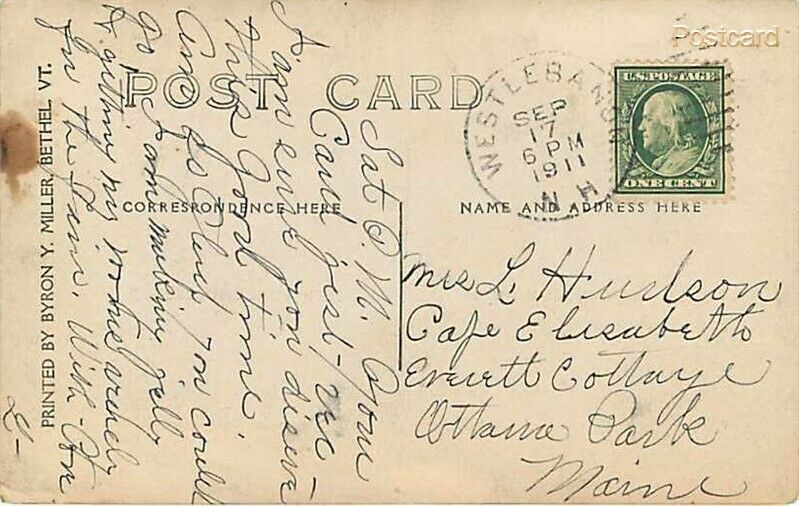 Postcard
POST CARD
WESTLEBANON
SEP
17
6 PM
1911
N H
U.S. POSTAGE
ONE CENT
CORRESPONDENCE HERE
NAME AND ADDRESS HERE
PRINTED BY BYRON Y. MILLER, BETHEL VT.
Mrs L. Hudson
Cape Elisabeth
Everett Cottage
Ottawa Park
Maine
Sat P.M.
Card just rec
I am envy you
this Good time.
Am so Glad you could
go I am making jelly
& getting my
in the Jam. With
L-